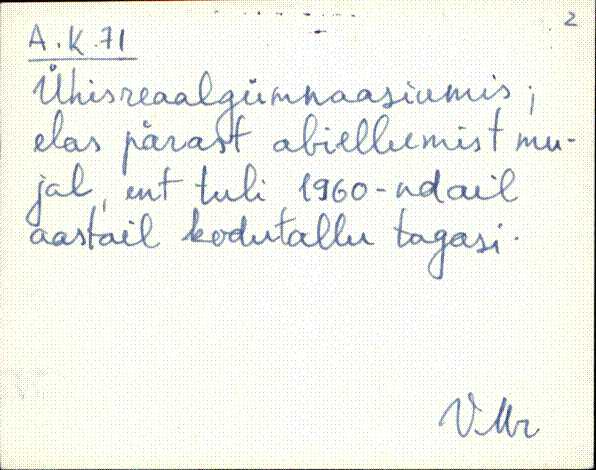 2
A.K.71
Ühisreaalgümnaasiumis;
elas pärast abiellumist mu-
jal, ent tuli 1960-ndail
aastail kodutallu tagasi.